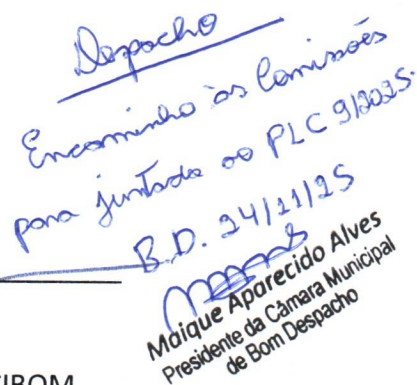 Despacho
Encaminho às Comissões
para juntada ao PLC 9/2025.
B.D. 24/11/25
Maique Aparecido Alves
Presidente da Câmara Municipal
de Bom Despacho
IBOM